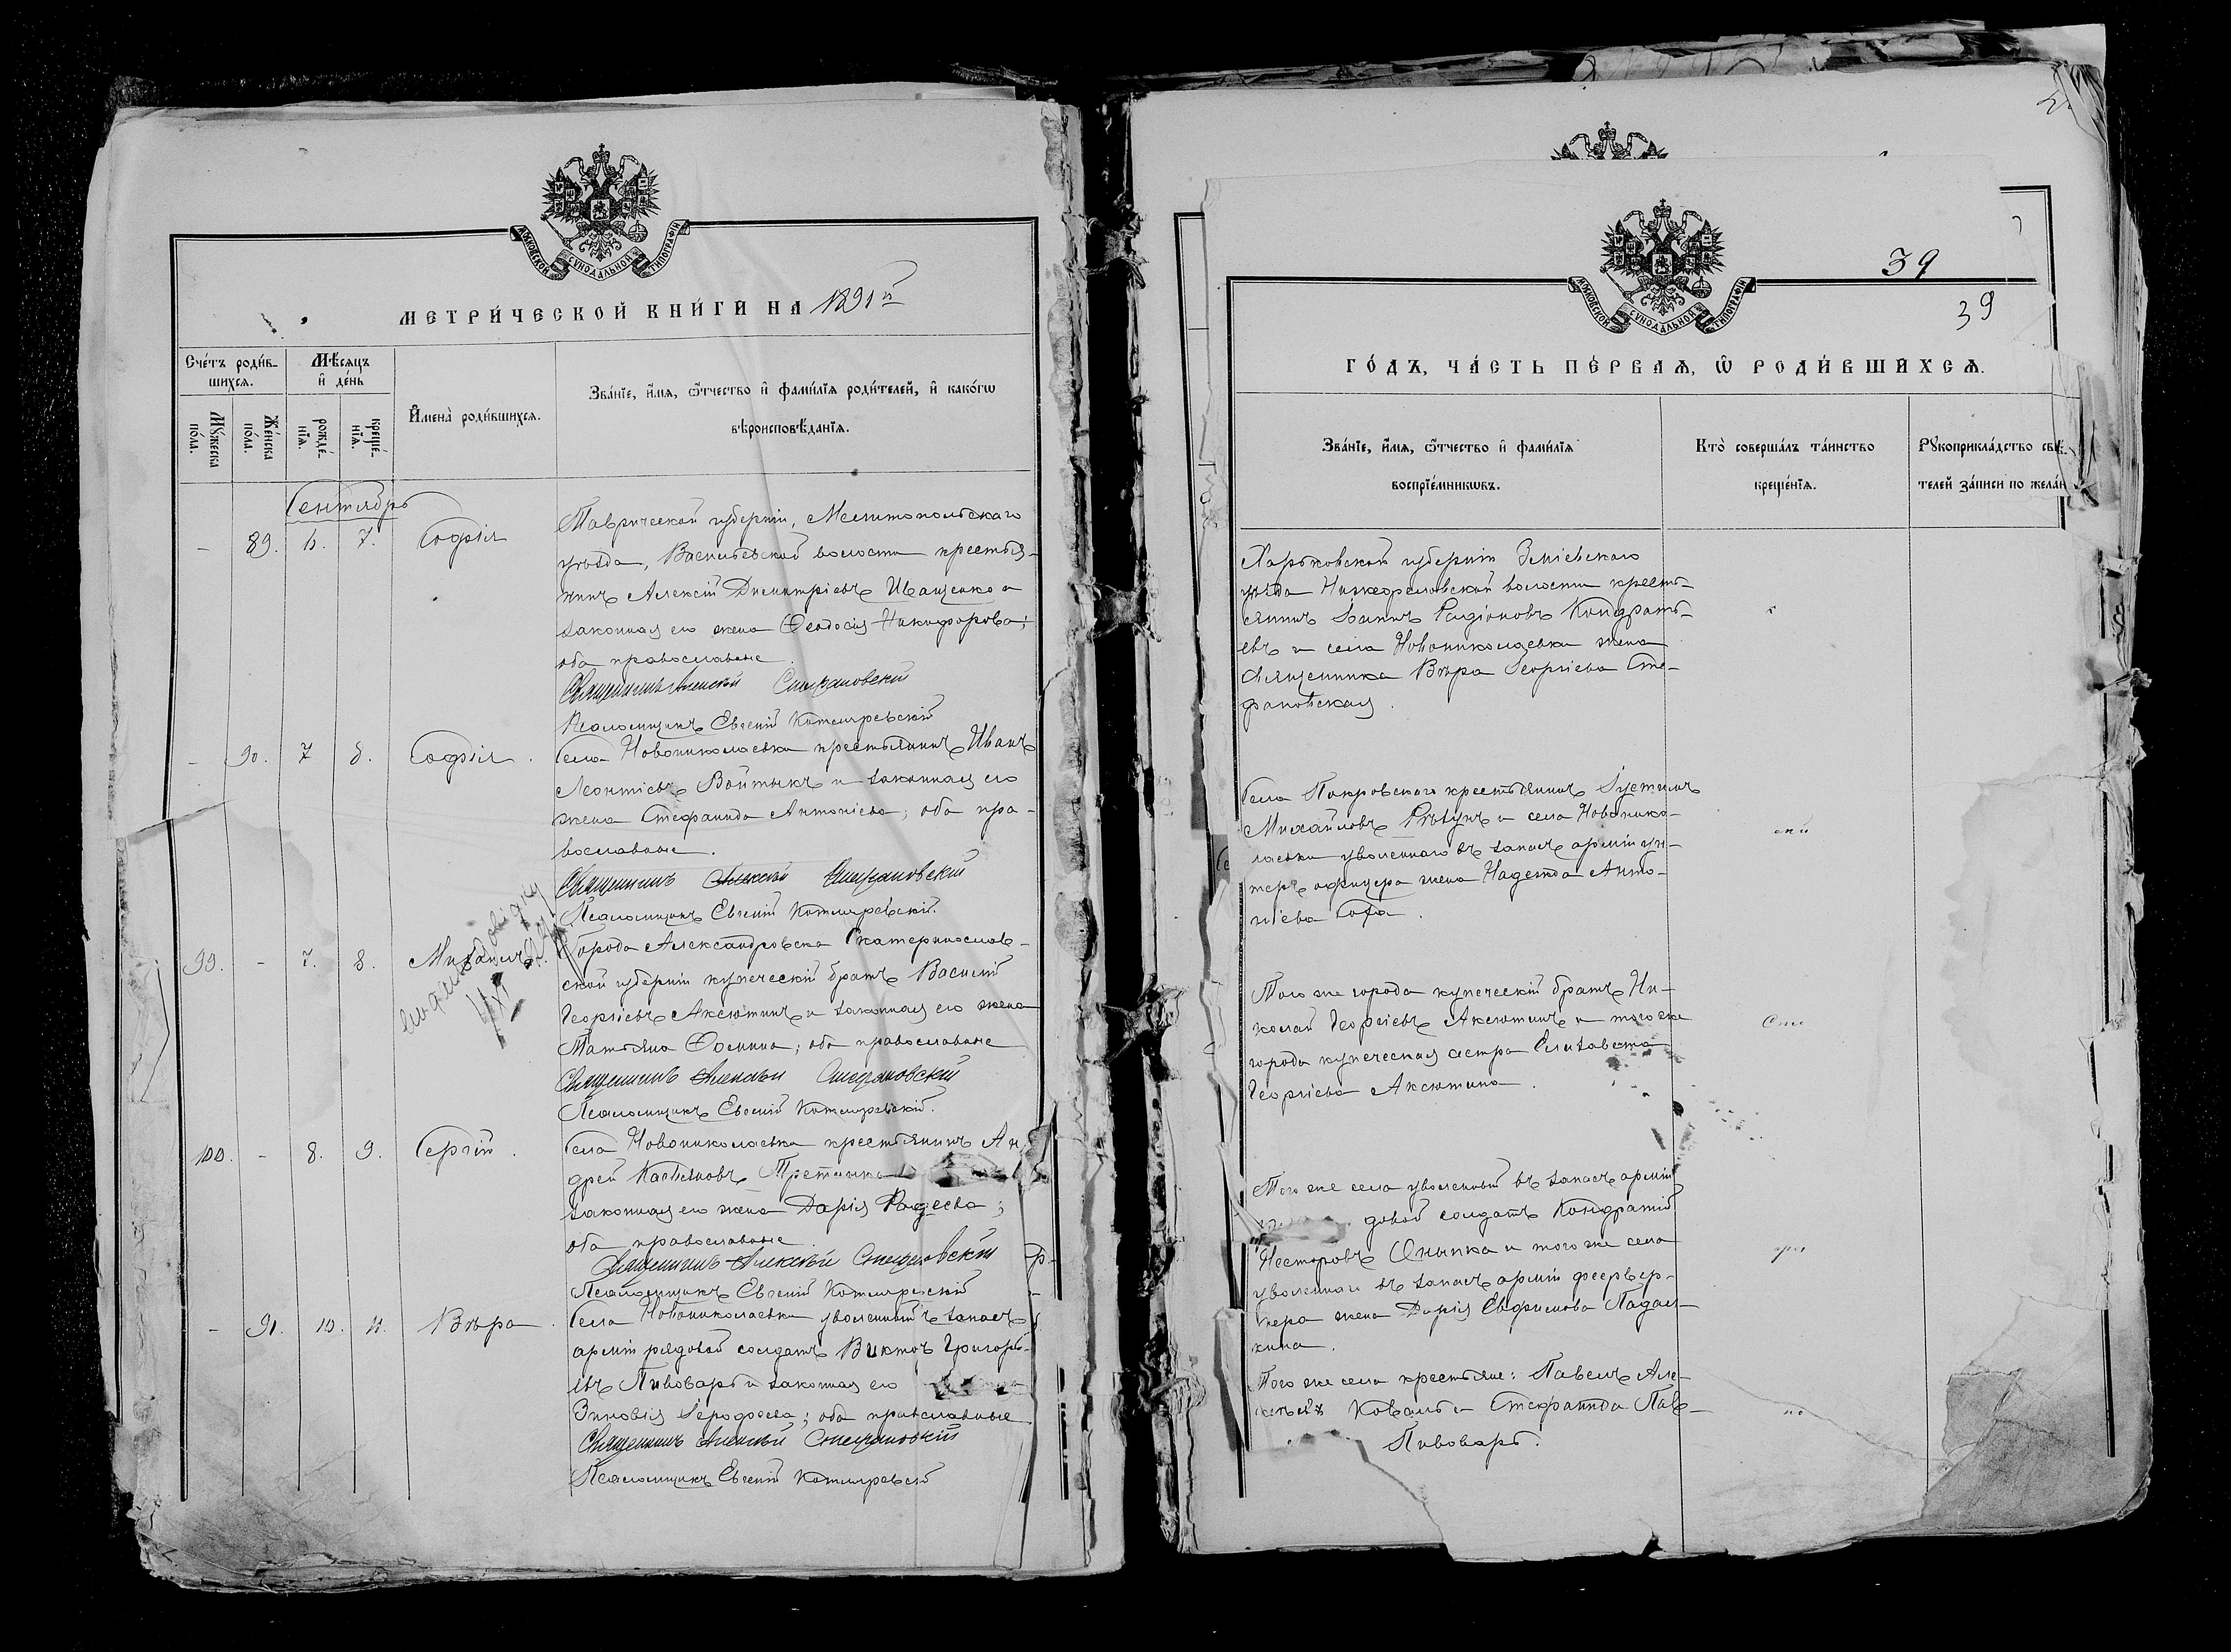 МОСКОВСКОЙ СѴНОДАЛЬНОЙ ТИПОГРАФІИ
МЕТРИ́ЧЕСКОЙ КНИ́ГИ НА 1891й
Сче́тъ роди́в-
шихся.
Мѣ́сяцъ
и҆ де́нь
Мꙋ́жеска
по́ла.
Же́нска
по́ла.
рожде́-
нїѧ.
креще́-
нїѧ.
И҆мена̀ роди́вшихсѧ.
Зва́нїе, и҆́мѧ, ѻ҆́тчество и҆ фами́лїѧ роди́телей, и҆ како́гѡ
вѣроисповѣ́данїѧ.
Сентябрь
- 89. 6. 7. Софія
Таврической губерніи, Мелитопольскаго
уѣзда, Васильевской волости крестья-
нинъ Алексій Димитріевъ Иващенко и
законная его жена Ѳеодосія Никифорова;
оба православные.
Священникъ Алексѣй Стефановскій
Псаломщикъ Евгеній Котляревскій
- 90. 7 8. Софія.
Села Новониколаевки крестьянинъ Иванъ
Леонтіевъ Войтыкъ и законная его
жена Стефанида Антоніева; оба пра-
вославные.
Священникъ Алексѣй Стефановскій
Псаломщикъ Евгеній Котляревскій.
99. - 7. 8. Михаилъ.
Города Александровска Екатеринослав-
ской губерніи купеческій братъ Василій
Георгіевъ Аксютинъ и законная его жена
Татьяна Ѳомина; оба православные
Священникъ Алексѣй Стефановскій
Псаломщикъ Евгеній Котляревскій.
100. - 8. 9. Сергій.
Села Новониколаевки крестьянинъ Ан-
дрей Касьяновъ
законная его жена Дарія Фадеева;
оба православные.
Священникъ Алексѣй Стефановскій
Псаломщикъ Евгеній Котляревскій
- 91. 10. 11. Вѣра.
Села Новониколаевки уволенный въ запасъ
арміи рядовой солдатъ Викторъ Григорь-
евъ Пивоваръ и законная его
Зиновія Іерофеева; оба православные.
Священникъ Алексѣй Стефановскій
Псаломщикъ Евгеній Котляревскій
39
39
МОСКОВСКОЙ СѴНОДАЛЬНОЙ ТИПОГРАФІИ
ГО́ДЪ, ЧА́СТЬ ПЕ́РВАѦ, Ѡ҆ РОДИ́ВШИХСѦ.
Зва́нїе, и҆́мѧ, ѻ҆́тчество и҆ фами́лїѧ
воспрїе́мникѡвъ.
Кто̀ соверша́лъ та́инство
креще́нїѧ.
Рꙋкоприкла́дство свѣ-
телей за́писи по жела́н
Харьковской губерніи Зміевскаго
уѣзда волости кресть-
янинъ Іоаннъ Радіоновъ Кондрать-
евъ и села Новониколаевки жена
священника Вѣра Георгіева Сте-
фановская.
Села Покровскаго крестьянинъ Іустинъ
Михайловъ и села Новонико-
лаевки уволеннаго въ запасъ арміи ун-
теръ офицера жена Надежда Анто-
ніева
Того же города купеческій братъ Ни-
колай Георгіевъ Аксютинъ и того же
города купеческая сестра Елизавета
Георгіева Аксютина.
Сте
Того же села уволенный въ запасъ арміи
довой солдатъ Кондратій
Несторовъ и того же села
уволеннаго въ запасъ арміи феервер-
кера жена Дарія Евфимова Падал-
кина.
Того же села крестьяне: Павелъ Але-
ксѣевъ Коваль и Стефанида Пав-
Пивоваръ.